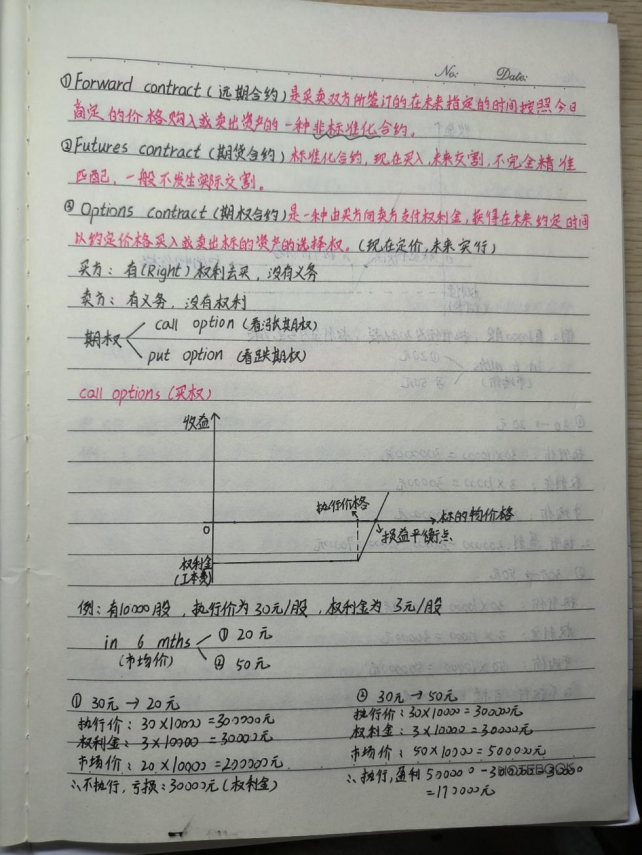 No: Date:
①Forward contract(远期合约)是买卖双方所签订的在未来指定的时间按照今日
商定的价格购入或卖出资产的一种非标准化合约。
②Futures contract(期货合约)标准化合约,现在买入,未来交割,不完全精准
匹配,一般不发生实际交割。
③Options contract(期权合约)是一种由买方向卖方支付权利金,换得在未来约定时间
以约定价格买入或卖出标的资产的选择权。(现在定价,未来实行)
买方:有(Right)权利去买,没有义务
卖方:有义务,没有权利
期权
call option(看涨期权)
put option(看跌期权)
call options(买权)
收益
执行价格
0
标的物价格
损益平衡点
权利金
(工本费)
例:有10000股,执行价为30元/股,权利金为3元/股
in 6 mths
(市场价)
① 20元
② 50元
① 30元→20元
执行价:30×10000=300000元
权利金:3×10000=30000元
市场价:20×10000=200000元
∴不执行,亏损:30000元(权利金)
② 30元→50元
执行价:30×10000=300000元
权利金:3×10000=30000元
市场价:50×10000=500000元
∴执行,盈利500000-300000-30000
=170000元